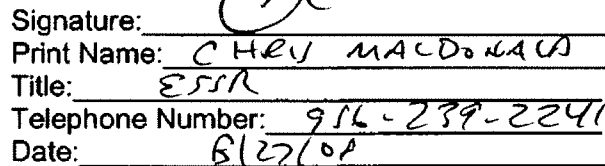 Signature:
Print Name: CHRIS MACDONALD
Title: ESSR
Telephone Number: 956-239-2241
Date: 8/27/08